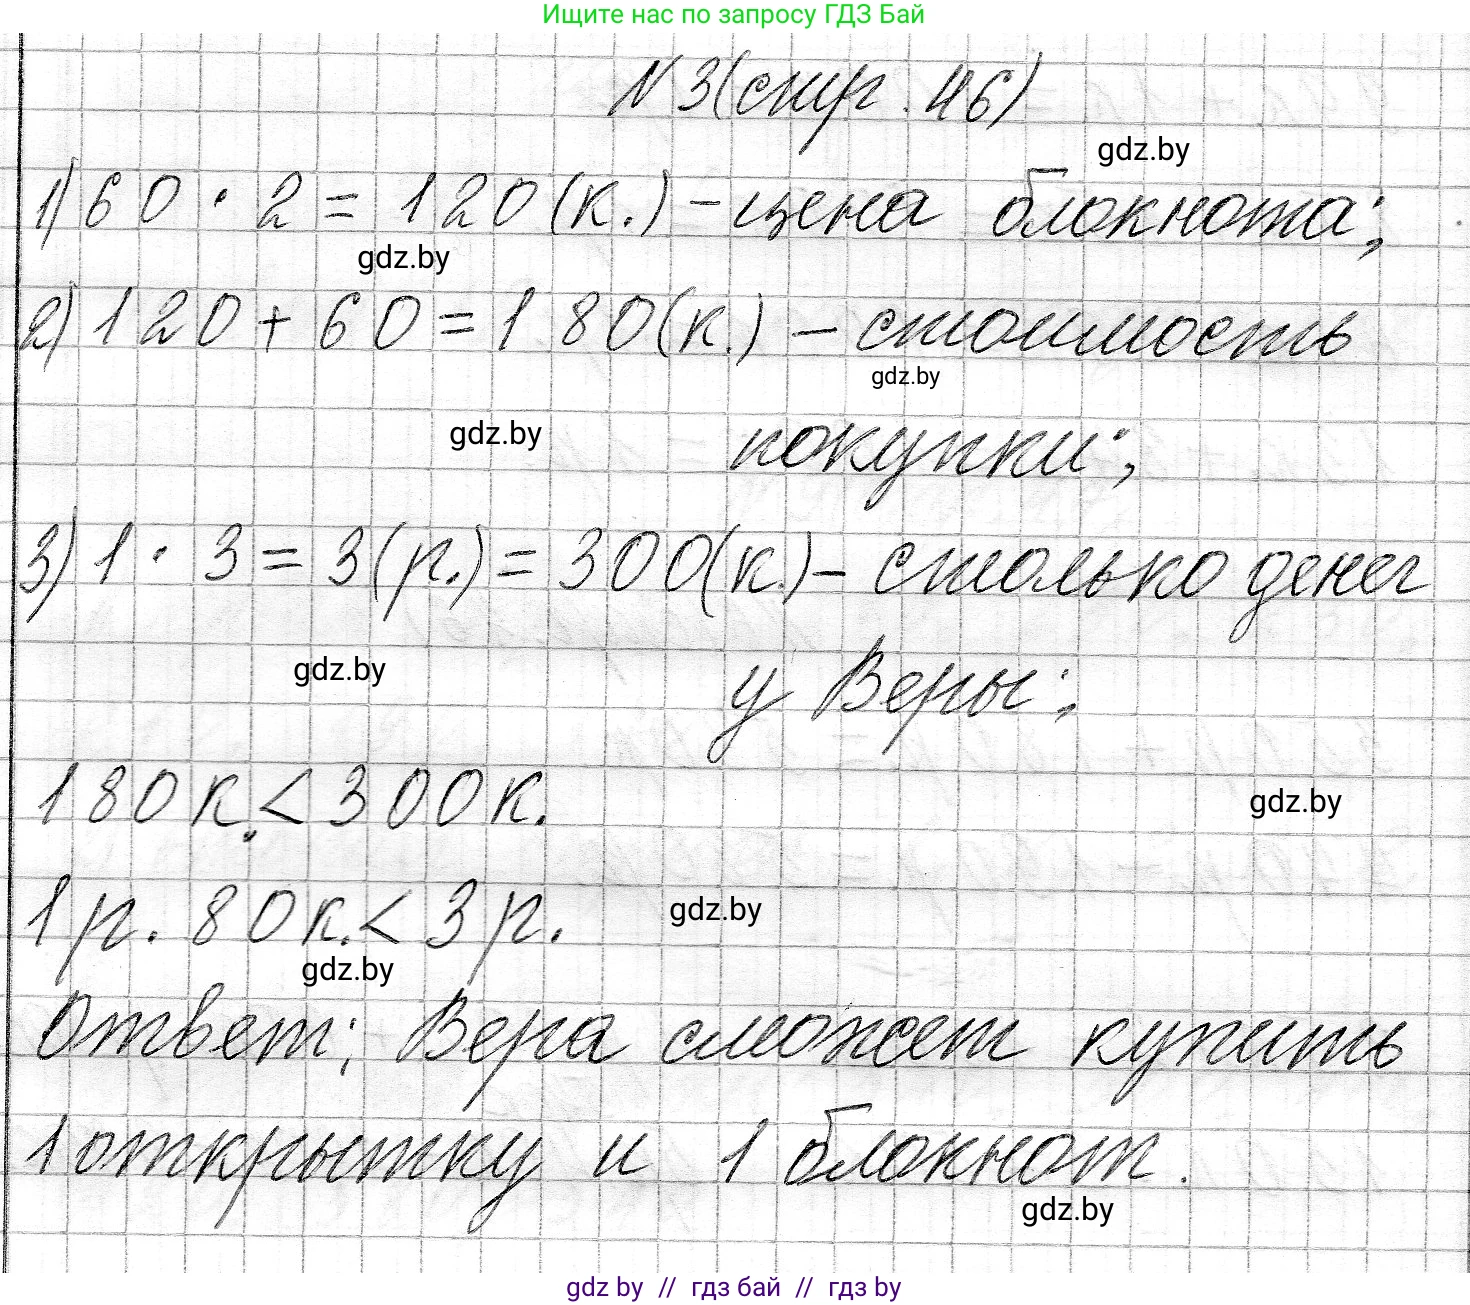 Ищите нас по запросу ГДЗ Бай
N 3 (стр. 46)
gdz.by
1) 60 · 2 = 120 (к.) - цена блокнота;
gdz.by
2) 120 + 60 = 180 (к.) - стоимость
gdz.by
gdz.by
покупки;
3) 1 · 3 = 3 (р.) = 300 (к.) - столько денег
gdz.by
у Веры;
180 к. < 300 к.
gdz.by
1 р. 80 к. < 3 р.
gdz.by
gdz.by
Ответ: Вера сможет купить
1 открытку и 1 блокнот.
gdz.by
gdz by // гдз бай // гдз by